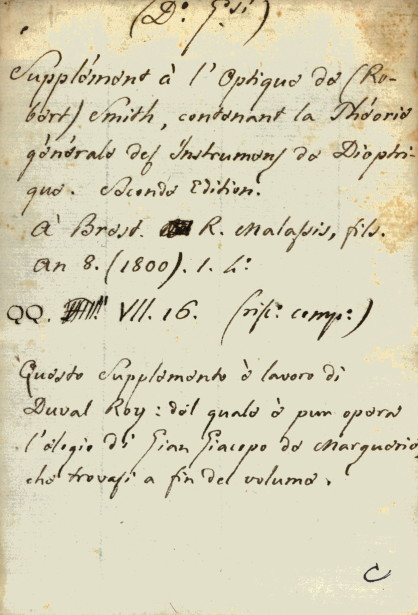 (D.° G.si)
Supplément à l'Optique de (Ro-
bert) Smith, contenant la Théorie
générale des Instrumens de Dioptri-
que. Seconde Edition.
à Brest. R. Malassis, fils.
An 8. (1800). 1. 4.°
QQ. VII. 16. (fis.° comp.°)
Questo Supplemento è lavoro di
Duval Roy: del quale è pur opera
l'elogio di Gian Giacopo de Marguerie,
che trovasi a fin del volume.
C